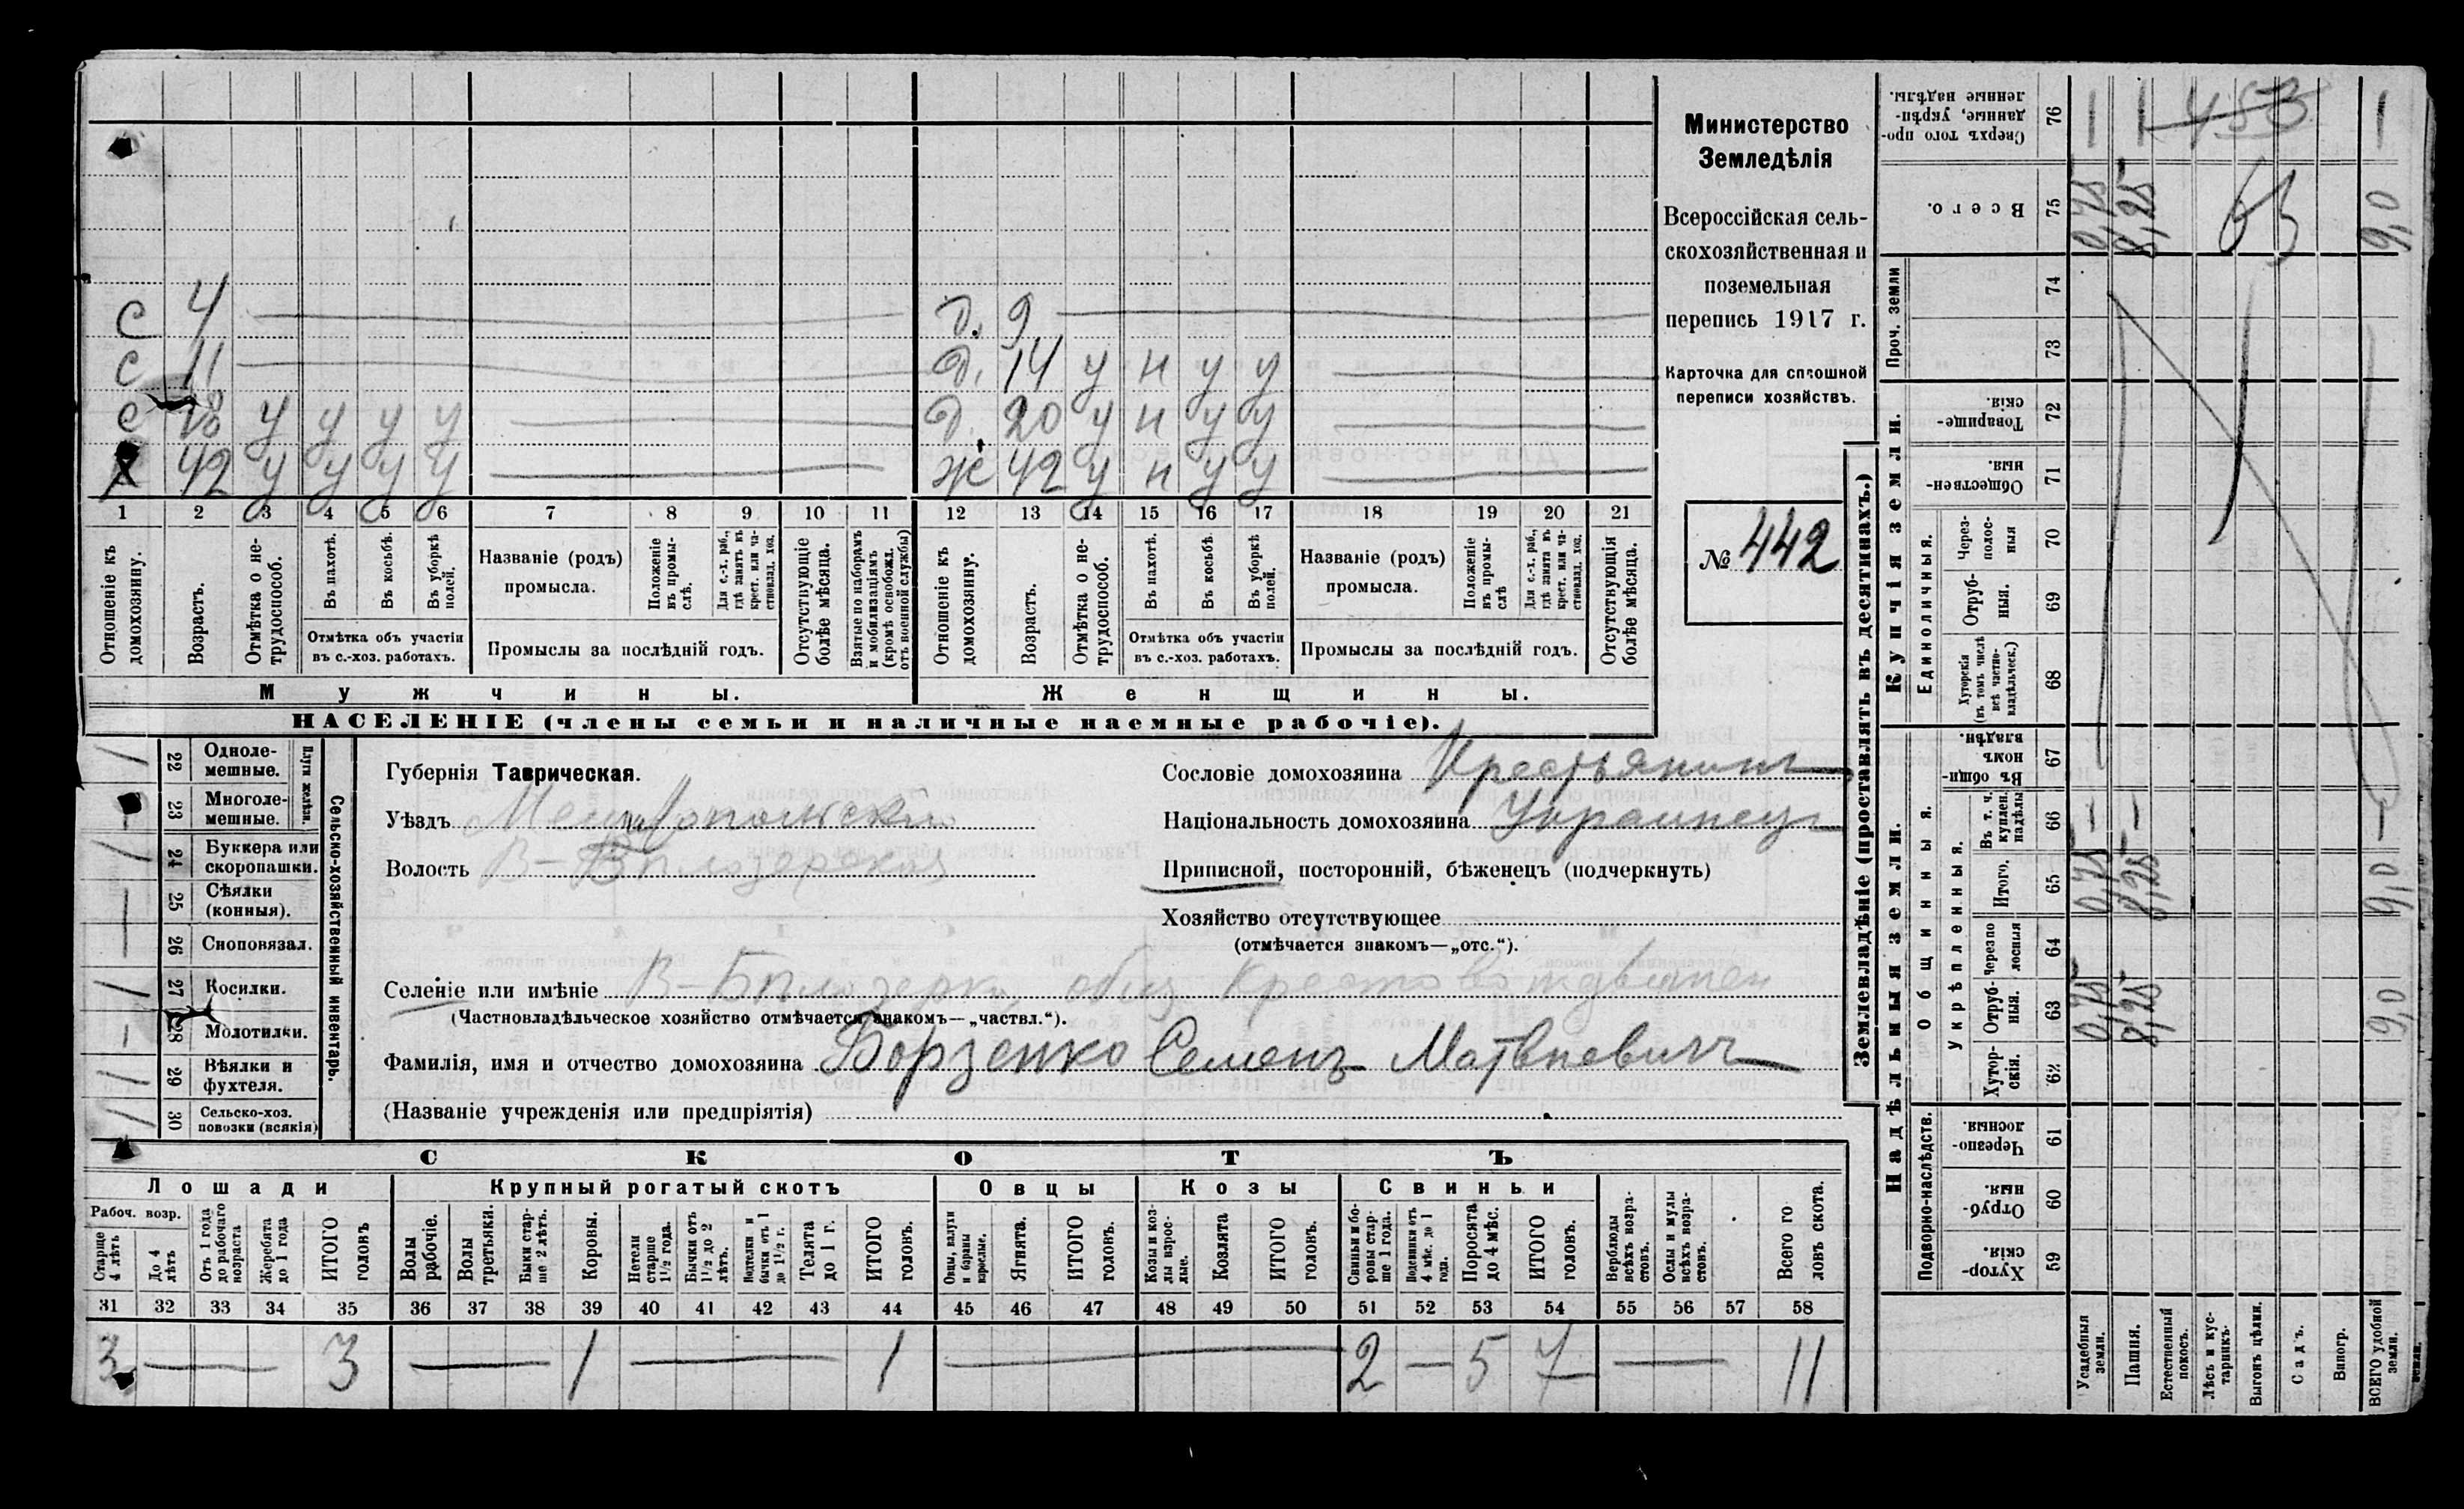 С 4 — Д. 9 —
С 11 — Д. 14 у н у у —
С 18 у у у у — Д. 20 у н у у —
Х 42 у у у у — Ж 42 у н у у —
1 2 3 4 5 6 7 8 9 10 11 12 13 14 15 16 17 18 19 20 21
Отношеніе къ домохозяину.
Возрастъ.
Отмѣтка о нетрудоспособ.
Въ пахотѣ.
Въ косьбѣ.
Въ уборкѣ полей.
Отмѣтка объ участіи
въ с.-хоз. работахъ.
Названіе (родъ)
промысла.
Положеніе въ промыслѣ.
Для с.-х. раб., гдѣ занятъ въ крест. или частновлад. хоз.
Промыслы за послѣдній годъ.
Отсутствующіе болѣе мѣсяца.
Взятые по наборамъ и мобилизаціямъ (кромѣ освобожд. отъ военной службы)
Отношеніе къ домохозяину.
Возрастъ.
Отмѣтка о нетрудоспособ.
Въ пахотѣ.
Въ косьбѣ.
Въ уборкѣ полей.
Отмѣтка объ участіи
въ с.-хоз. работахъ.
Названіе (родъ)
промысла.
Положеніе въ промыслѣ
Для с.-х. раб., гдѣ занята въ крест. или частновлад. хоз.
Промыслы за послѣдній годъ.
Отсутствующія болѣе мѣсяца.
Мужчины. Женщины.
НАСЕЛЕНІЕ (члены семьи и наличные наемные рабочіе).
Министерство
Земледѣлія
Всероссійская сель-
скохозяйственная и
поземельная
перепись 1917 г.
Карточка для сплошной
переписи хозяйствъ.
№ 442
Сельско-хозяйственный инвентарь.
Плуги желѣзн.
22 Одноле-
мешные. 1
23 Многоле-
мешные. —
24 Буккера или
скоропашки. 1
25 Сѣялки
(конныя). —
26 Сноповязал. —
27 Косилки. 1
28 Молотилки. —
29 Вѣялки и
фухтеля. 1
30 Сельско-хоз.
повозки (всякія) 1
Губернія Таврическая.
Уѣздъ Мелитопольскій
Волость В-Бѣлозерская
Сословіе домохозяина Крестьянинъ
Національность домохозяина Украинецъ
Приписной, посторонній, бѣженецъ (подчеркнуть)
Хозяйство отсутствующее
(отмѣчается знакомъ—„отс.“).
Селеніе или имѣніе В-Бѣлозерка общ Крестовоздвижен
(Частновладѣльческое хозяйство отмѣчается знакомъ—„частвл.“).
Фамилія, имя и отчество домохозяина Борзенко Семенъ Матвѣевичъ
(Названіе учрежденія или предпріятія)
СКОТЪ
Лошади Крупный рогатый скотъ Овцы Козы Свиньи
Рабоч. возр.
Старше 4 лѣтъ
До 4 лѣтъ
Отъ 1 года до рабочаго возраста
Жеребята до 1 года
ИТОГО головъ
Волы рабочіе.
Волы третьяки.
Быки старше 2 лѣтъ.
Коровы.
Нетели старше 1 1/2 года.
Бычки отъ 1 1/2 до 2 лѣтъ.
Подтелки и бычки отъ 1 до 1 1/2 г.
Телята до 1 г.
ИТОГО головъ.
Овцы, валухи и бараны взрослые.
Ягнята.
ИТОГО головъ.
Козы и козлы взрослые.
Козлята
ИТОГО головъ.
Свиньи и боровы старше 1 года.
Подсвинки отъ 4 мѣс. до 1 года.
Поросята до 4 мѣс.
ИТОГО головъ.
Верблюды всѣхъ возрастовъ.
Ослы и мулы всѣхъ возрастовъ.
Всего головъ скота.
31 32 33 34 35 36 37 38 39 40 41 42 43 44 45 46 47 48 49 50 51 52 53 54 55 56 57 58
3 — 3 — 1 — 1 — 2 — 5 7 — 11
Землевладѣніе (проставлять въ десятинахъ.)
Надѣльныя земли. Купчія земли.
Подворно-наслѣдств.
Общинныя.
Укрѣпленныя.
Единоличныя.
Проч. земли
59 Хуторскія.
60 Отрубныя.
61 Черезполосныя.
62 Хуторскія.
63 Отрубныя. 0,75 8,25 9,0
64 Черезполосныя
65 Итого. 0,75 8,25 9,0
66 Въ т. ч. куплен. надѣлы — — —
67 Въ общинномъ владѣн.
68 Хуторскія (въ томъ числѣ всѣ частновладѣльческ.)
69 Отрубныя.
70 Черезполосныя
71 Общественныя.
72 Товарищескія.
73
74
75 Всего. 0,75 8,25 9,0
63
76 Сверхъ того проданные, укрѣпленные надѣлы. — — —
453
Усадебныя земли.
Пашня.
Естественный покосъ.
Лѣсъ и кустарникъ.
Выгонъ цѣлин.
Садъ.
Виногр.
ВСЕГО удобной земли.